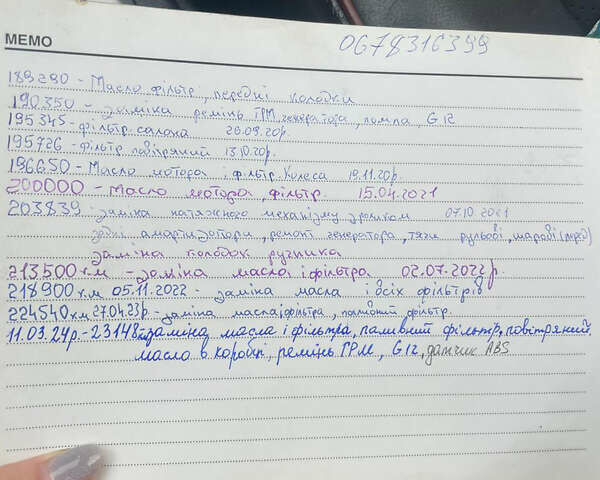 MEMO
0678316399
189290 - Масло фільтр, передні колодки
190350 - заміна ремінь ГРМ, генератора, помпа G12
195345 - фільтр салона 28.09.20р.
195726 - фільтр повітряний 13.10.20р.
196650 - Масло мотора і фільтр. Колеса 19.11.20р.
200000 - Масло мотора, фільтр. 15.04.2021
203839 - заміна натяжного механізму з роликом 07.10.2021
задні амортизатори, ремонт генератора, тяги рульові, шарові (перед)
заміна колодок ручника
213500 к.м - заміна масла і фільтра 02.07.2022р
218900 к.м 05.11.2022 - заміна масла і всіх фільтрів
224540 км 27.04.23р - заміна масла і фільтра, паливний фільтр.
11.03.24р. - 23148 заміна масла і фільтра, паливний фільтр, повітряний,
масло в коробці, ремінь ГРМ, G12, датчик ABS